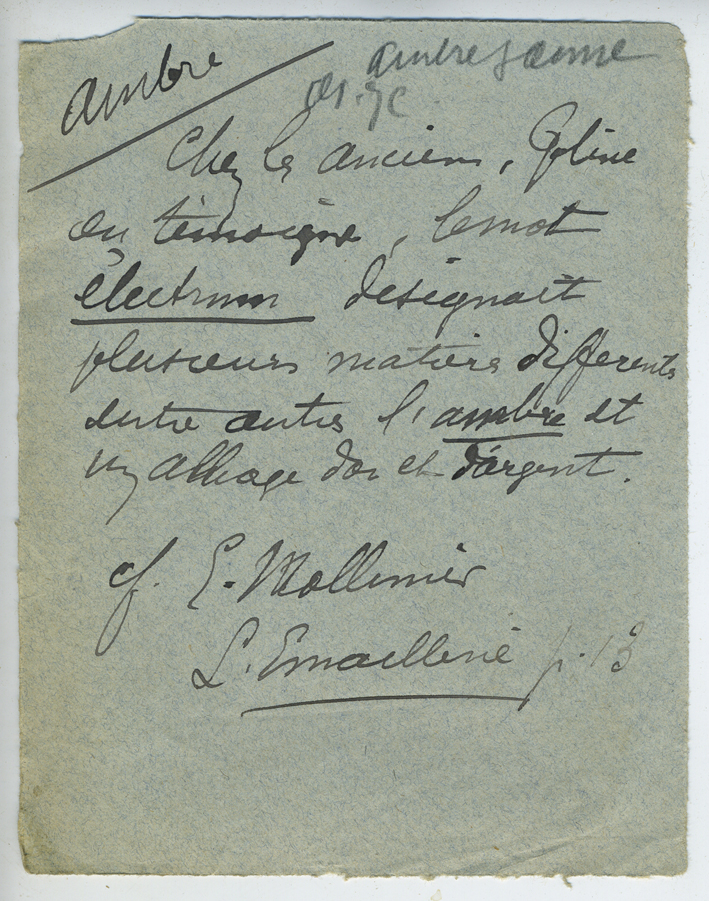 ambre
ambre jaune
Chez les anciens, Pline
en témoigne, le mot
électrum désignait
plusieurs matières différentes
entre autres l'ambre et
un alliage d'or et d'argent.
cf. E. Mollinier
L'Emaillerie p. 13